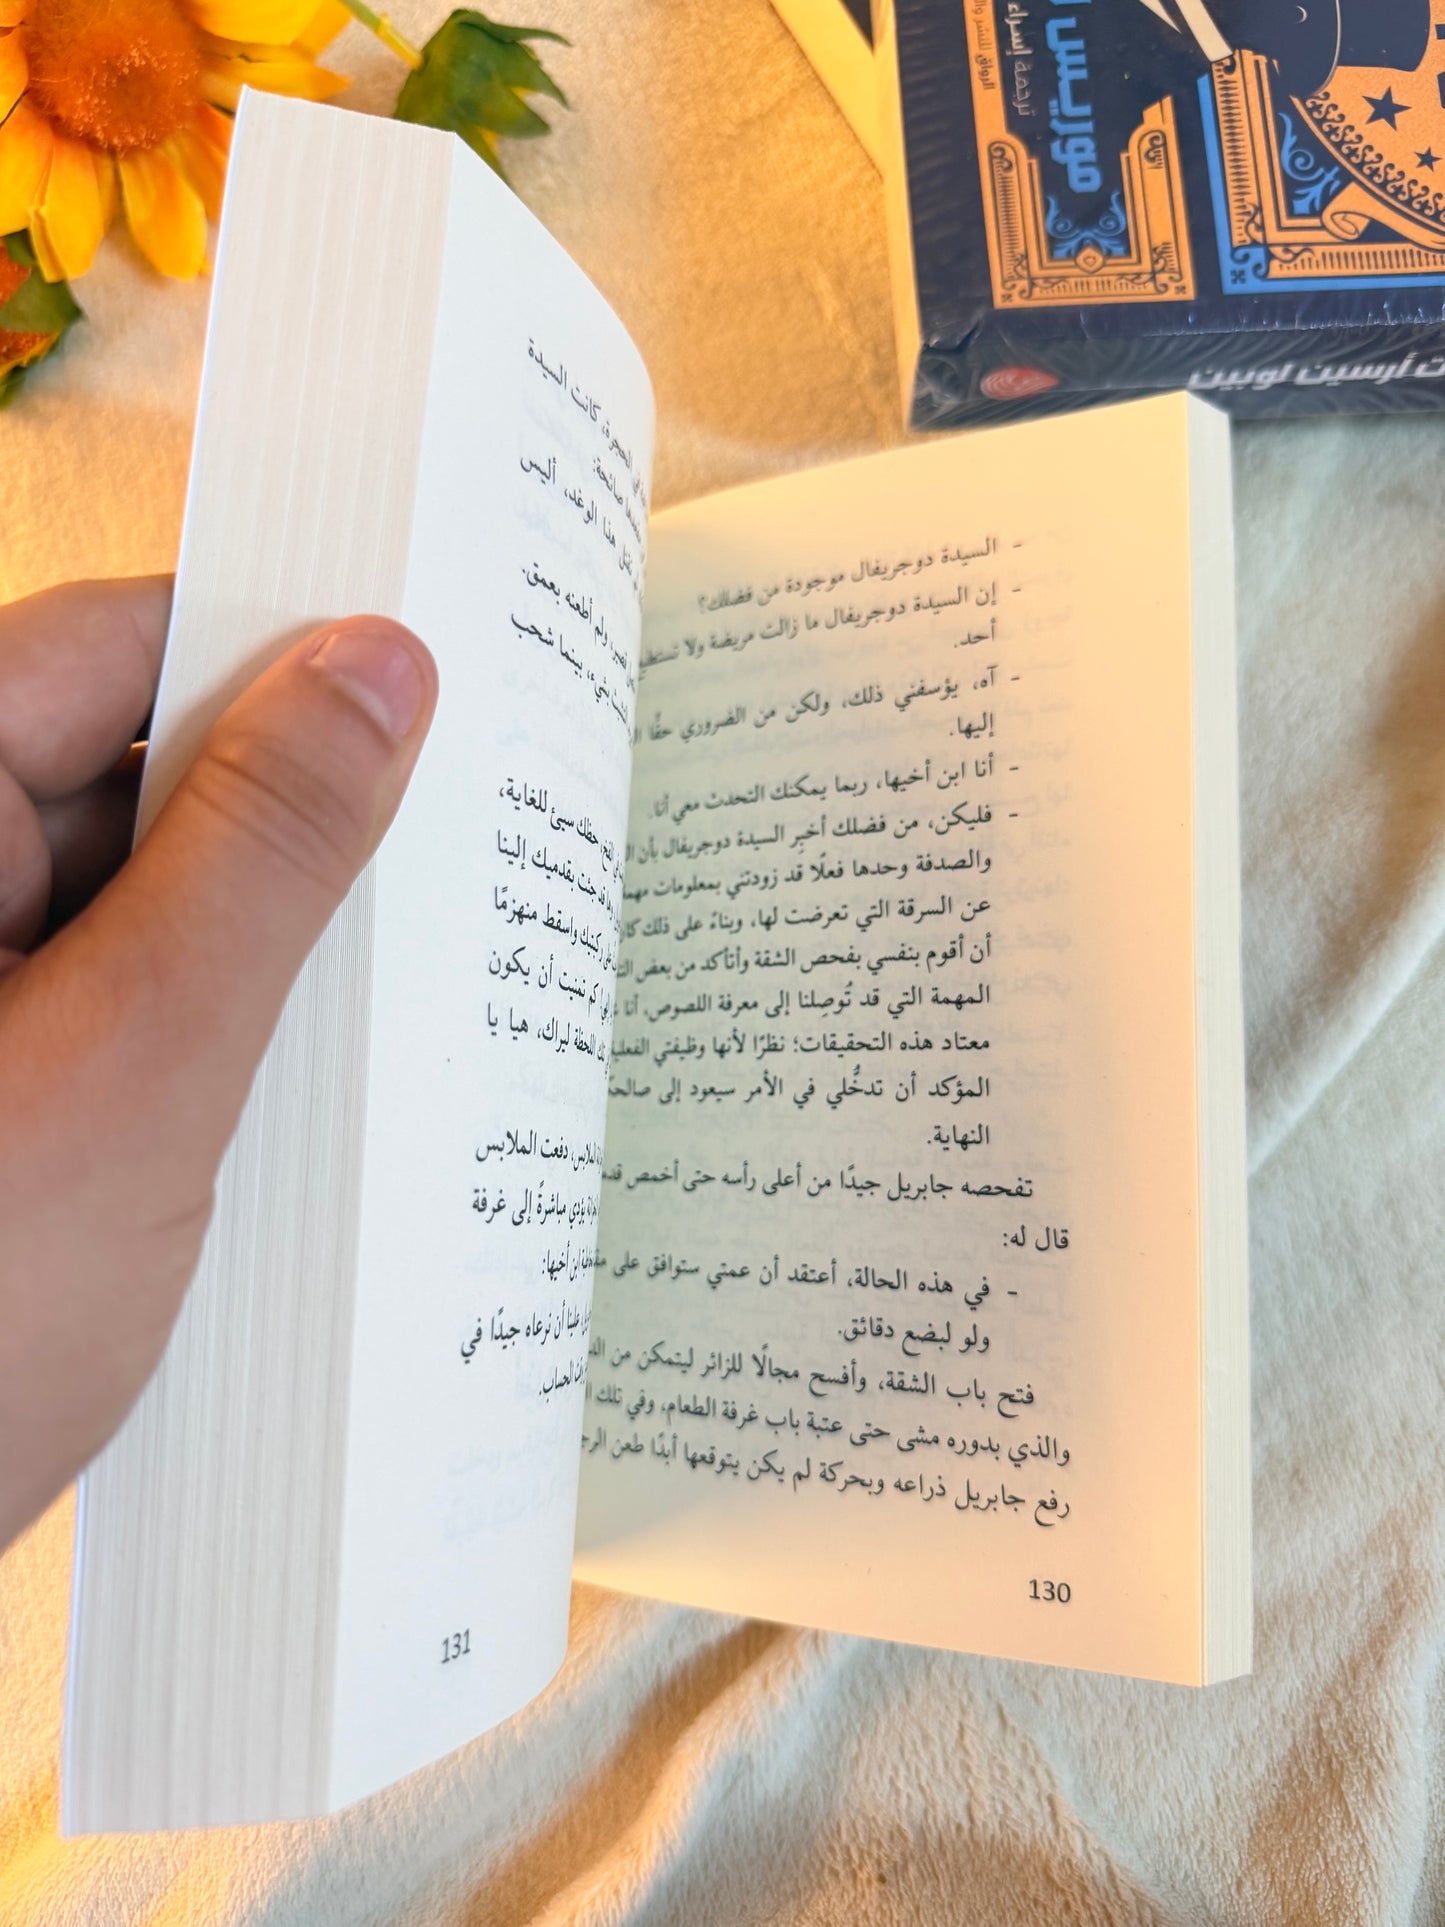 موريس
ترجمة إسراء
الرواق للنشر
أرسين لوبين
- السيدة دوجريفال موجودة من فضلك؟
- إن السيدة دوجريفال ما زالت مريضة ولا تستطيع
أحد.
- آه، يؤسفني ذلك، ولكن من الضروري حقًّا
إليها.
- أنا ابن أخيها، ربما يمكنك التحدث معي أنا.
- فليكن، من فضلك أخبِر السيدة دوجريفال بأن
والصدفة وحدها فعلًا قد زودتني بمعلومات مهمة
عن السرقة التي تعرضت لها، وبناءً على ذلك
أن أقوم بنفسي بفحص الشقة وأتأكد من بعض
المهمة التي قد تُوصِلنا إلى معرفة اللصوص، أنا
معتاد هذه التحقيقات؛ نظرًا لأنها وظيفتي
المؤكد أن تدخُّلي في الأمر سيعود إلى
النهاية.
تفحصه جابريل جيدًا من أعلى رأسه حتى أخمص
قال له:
- في هذه الحالة، أعتقد أن عمتي ستوافق على
ولو لبضع دقائق.
فتح باب الشقة، وأفسح مجالًا للزائر ليتمكن من
والذي بدوره مشى حتى عتبة باب غرفة الطعام، وفي تلك
رفع جابريل ذراعه وبحركة لم يكن يتوقعها أبدًا طعن
130
الحجرة، كانت السيدة
صائحة:
هذا الوغد، أليس
ولم أطعنه بعمق.
بشيء، بينما شحب
حظك سيئ للغاية،
قد جئت بقدميك إلينا
ركبتيك واسقط منهزمًا
كم تمنيت أن يكون
اللحظة ليراك، هيا يا
الملابس، دفعت الملابس
يؤدي مباشرةً إلى غرفة
ابن أخيها:
علينا أن نرعاه جيدًا في
الحساب.
131